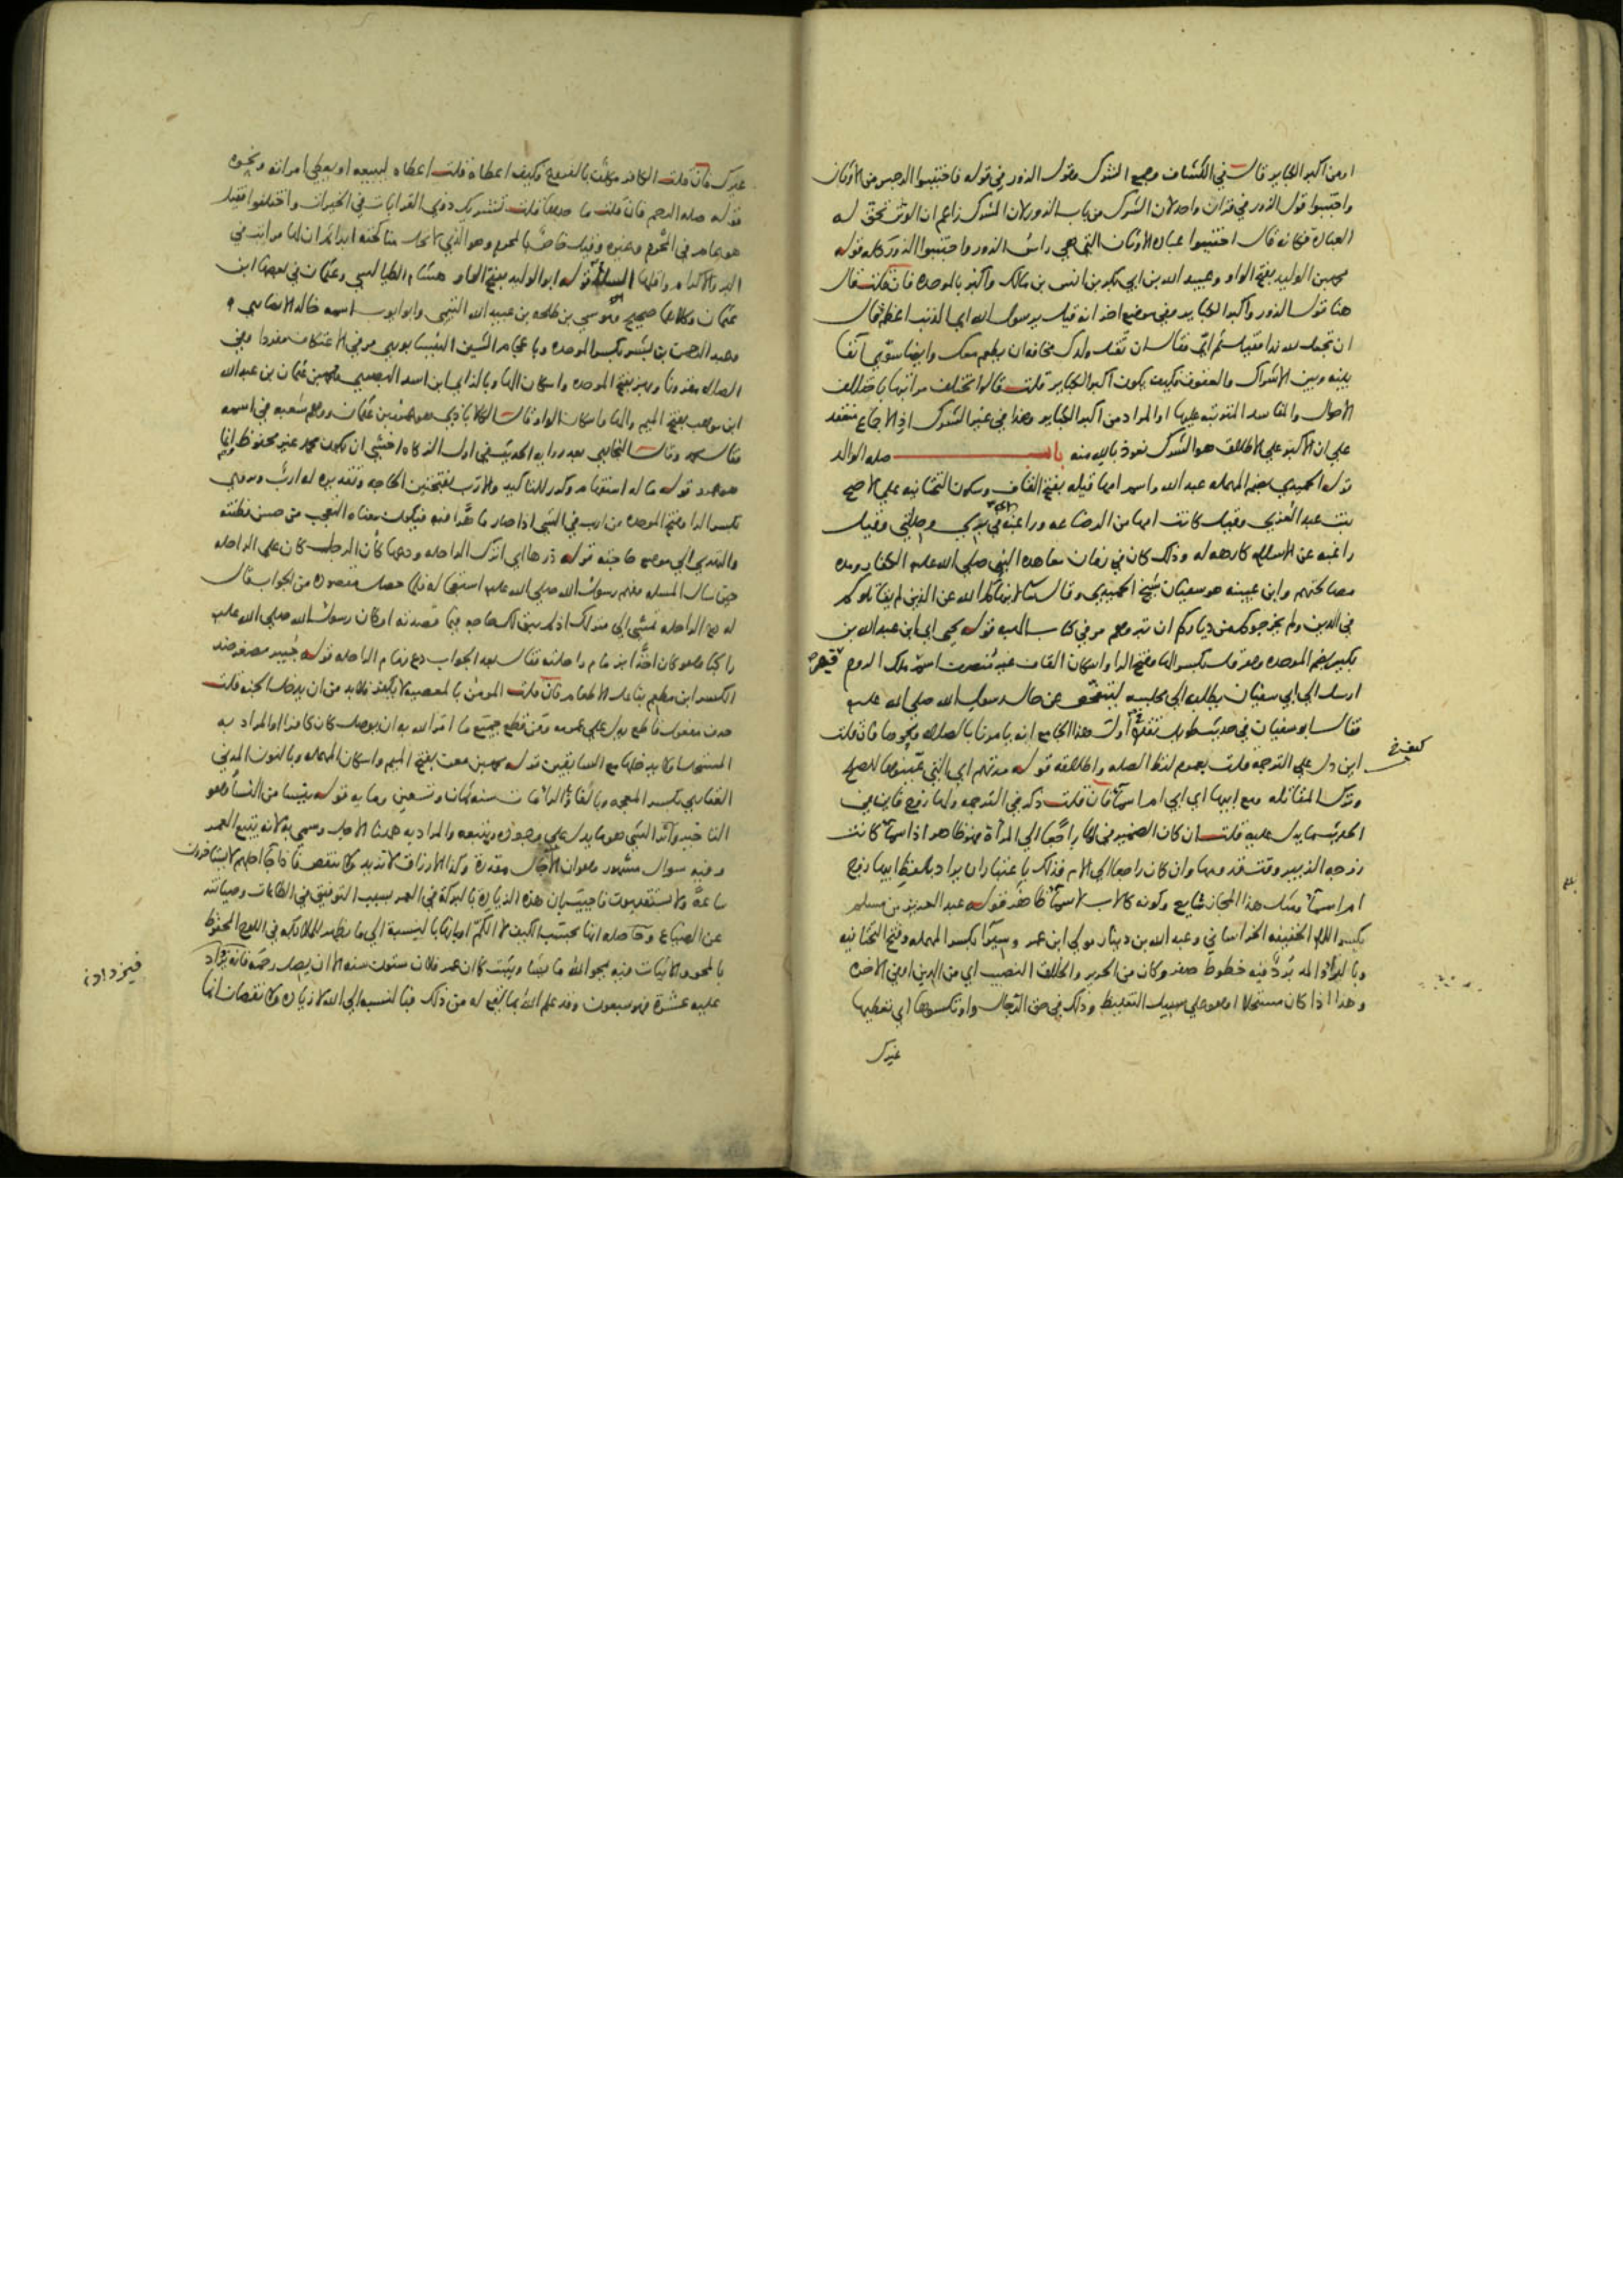 او من اكبر الكباير قال في الكشاف وجمع الشرك وقول الزور في قوله فاجتنبوا الرجس من الاوثان
واجتنبوا قول الزور في قران واحد لان الشرك من باب الزور لان المشرك زاعم ان الوثن تحق له
العبادة فكانه قال اجتنبوا عبادة الاوثان التي هي راس الزور واجتنبوا الزور كله قوله
محمد بن الوليد بفتح الواو وعبيد الله بن ابي بكر بن انس بن مالك واكبر بالموحده فان قلت قال
هنا قول الزور واكبر الكباير وفي موضع اخر انه قيل يا رسول الله اي الذنب اعظم قال
ان تجعل لله ندا فقيل ثم اي فقال ان تقتل ولدك مخافة ان يطعم معك وايضا سوى انفا
بينه وبين الاشراك والعقوق فكيف يكون اكبر الكباير قلت قالوا تختلف مراتبها باختلاف
الاحوال والمفاسد المترتبه عليها او المراد من اكبر الكباير وهذا في غير الشرك اذ الاجماع منعقد
على ان الاكبر على الاطلاق هو الشرك نعوذ بالله منه باب صله الوالد
قوله الحميدي بضم المهمله عبد الله واسم امها قيله بفتح القاف وسكون التحتانيه على الاصح
بنت عبد العزى وقيل كانت امها من الرضاعه وراغبه اي في بري وصلتي وقيل
راغبه عن الاسلام كارهه له وذلك كان في زمان معاهده النبي صلى الله عليه الكفار ومده
مصالحتهم وابن عيينه هو سفيان شيخ الحميدي وقال تعالى لا ينهاكم الله عن الذين لم يقاتلوكم
في الدين ولم يخرجوكم من دياركم ان تبروهم مر في كتاب الهبه قوله يحيى اي ابن عبد الله بن
بكير بضم الموحده وهرقل بكسر الها وفتح الرا واسكان القاف غير منصرف اسم ملك الروم قيصر
ارسل الى ابي سفيان يطلبه الى مجلسه ليتفحص عن حال رسول الله صلى الله عليه
فقال ابو سفيان في حديث طويل تقدم في اول هذا الجامع انه يامرنا بالصلاه ونحوها فان قلت
كيف
اين دل على الترجمه قلت بعموم لفظ الصله واطلاقه قوله مدتهم اي التي عينوها للصلح
وترك المقاتله ومع ابيها اي ابي ام اسماء فان قلت ذكر في الترجمه ولها زوج فاين في
الحديث ما يدل عليه قلت ان كان الضمير في لها راجعا الى المراة فهو ظاهر اذ اسماء كانت
زوجه الزبير وقت قدومها وان كان راجعا الى الام فذلك باعتبار ان يراد بلفظ ابيها زوج
ام اسماء ومثل هذا المجاز شايع وكونه كالاب لاسماء ظاهر قوله عبد العزيز بن مسلم
بكسر اللام الخفيفه الخراساني وعبد الله بن دينار مولى ابن عمر وسيرا بكسر المهمله وفتح التحتانيه
وبالراء والمد برد فيه خطوط صفر وكان من الحرير والخلاق النصيب اي من الدين او في الاخره
وهذا اذا كان مستحلا او هو على سبيل التغليظ وذلك في حق الرجال واو تكسوها اي تعطيها
غيرك
غيرك فان قلت الكافر مكلف بالفروع فكيف اعطاه قلت اعطاه ليبيعه او يعطي امراته ونحوه
قوله صله الرحم فان قلت ما حدها قلت تشريك ذوي القرابات في الخيرات واختلفوا فقيل
هو عام في المحرم وغيره وقيل خاص بالمحرم وهو الذي لا يحل مناكحته ابدا ثم ان لها مراتب في
البر والاكرام واقلها السلام قوله ابو الوليد بفتح الواو هشام الطيالسي وعثمان في بعضها ابن
عثمان وكلاهما صحيح وموسى بن طلحه بن عبيد الله التيمي وابو ايوب اسمه خالد الانصاري
وعبد الرحمن بن بشر بكسر الموحده وباعجام الشين النيسابوري مر في الاعتكاف مفردا وفي
الصلاه مقرونا وبهز بفتح الموحده واسكان الها وبالزاي ابن اسد البصري ومحمد بن عثمان بن عبد الله
ابن موهب بفتح الميم والها واسكان الواو قال الكلاباذي هو عمرو بن عثمان ووهم شعبه في اسمه
فقال محمد وقال البخاري بعد روايه الحديث في اول الزكاه اخشى ان يكون محمد غير محفوظ انما
هو عمرو قوله ما له استفهام وكرر للتاكيد والارب بفتحتين الحاجه وتقديره له ارب وروي
بكسر الرا وفتح الموحده من ارب في الشي اذا صار ماهرا فيه فيكون معناه التعجب من حسن فطنته
والتهدي الى موضع حاجته قوله ذرها اي اترك الراحله ودعها كان الرجل كان على الراحله
حين سال المسله وفهم رسول الله صلى الله عليه استعجاله فلما حصل مقصوده من الجواب قال
له دع الراحله تمشي الى منزلك اذ لم يبق لك حاجه فيما قصدته او كان رسول الله صلى الله عليه
راكبا وهو كان اخذا بزمام راحلته فقال بعد الجواب دع زمام الراحله قوله جبير مصغر ضد
الكسر ابن مطعم بفاعل الاطعام فان قلت المومن بالمعصيه لا يكفر فلا بد من ان يدخل الجنه قلت
حذف مفعول قاطع يدل على عمومه ومن قطع جميع ما امر الله به ان يوصل كان كافرا او المراد به
المستحل او لا يدخلها مع السابقين قوله محمد بن معن بفتح الميم واسكان المهمله وبالنون المدني
الغفاري بكسر المعجمه وبالفاء والراء مات سنه ثمان وتسعين ومايه قوله ينسا من النسا وهو
التاخير واثر الشي هو ما يدل على وجوده ويتبعه والمراد به ههنا الاجل وسمي به لانه يتبع العمر
وفيه سوال مشهور وهو ان الاجال مقدرة وكذا الارزاق لا تزيد ولا تنقص فاذا جا اجلهم لا يستاخرون
ساعة ولا يستقدمون فاجيب بان هذه الزيادة بالبركة في العمر بسبب التوفيق في الطاعات وصيانته
عن الضياع وحاصله انها بحسب الكيف لا الكم او بانها بالنسبة الى ما يظهر للملائكه في اللوح المحفوظ
بالمحو والاثبات فيه يمحو الله ما يشا ويثبت كان عمر فلان ستون سنه الا ان يصل رحمه فانه يزاد
فيزداد
عليه عشرة فهو سبعون وقد علم الله بما يقع له من ذلك فبالنسبه الى الله لا زياده ولا نقصان انما